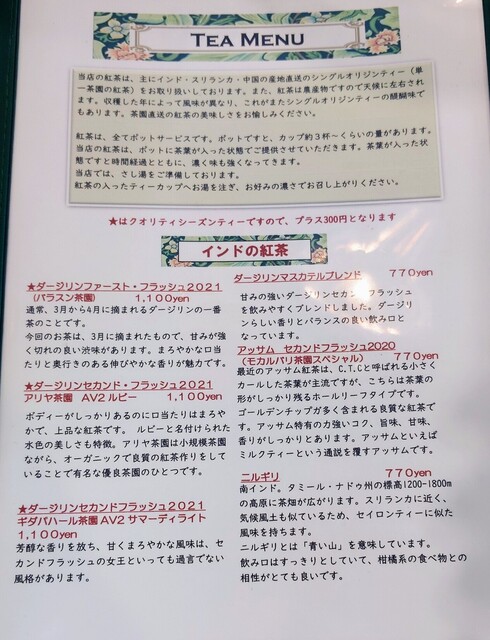 TEA MENU
当店の紅茶は、主にインド・スリランカ・中国の産地直送のシングルオリジンティー（単
一茶園の紅茶）をお取り扱いしております。また、紅茶は農産物ですので天候に左右され
ます。収穫した年によって風味が異なり、これがまたシングルオリジンティーの醍醐味で
もあります。茶園直送の紅茶の美味しさをお愉しみください。
紅茶は、全てポットサービスです。ポットですと、カップ約3杯〜くらいの量があります。
当店の紅茶は、ポットに茶葉が入った状態でご提供させていただきます。茶葉が入った状
態ですと時間経過とともに、濃く味も強くなってきます。
当店では、さし湯をご準備しております。
紅茶の入ったティーカップへお湯を注ぎ、お好みの濃さでお召し上がりください。
★はクオリティシーズンティーですので、プラス300円となります
インドの紅茶
★ダージリンファースト・フラッシュ2021
（バラスン茶園） 1,100yen
通常、3月から4月に摘まれるダージリンの一番
茶のことです。
今回のお茶は、3月に摘まれたもので、甘みが強
く切れの良い渋味があります。まろやかな口当
たりと奥行きのある伸びやかな香りが魅力です。
★ダージリンセカンド・フラッシュ2021
アリヤ茶園 AV2 ルビー 1,100yen
ボディーがしっかりあるのに口当たりはまろや
かで、上品な紅茶です。 ルビーと名付けられた
水色の美しさも特徴。アリヤ茶園は小規模茶園
ながら、オーガニックで良質の紅茶作りをして
いることで有名な優良茶園のひとつです。
★ダージリンセカンドフラッシュ2021
ギダパハール茶園 AV2 サマーディライト
1,100yen
芳醇な香りを放ち、甘くまろやかな風味は、セ
カンドフラッシュの女王といっても過言でない
風格があります。
ダージリンマスカテルブレンド 770yen
甘みの強いダージリンセカンドフラッシュ
を飲みやすくブレンドしました。ダージリ
ンらしい香りとバランスの良い飲み口と
なっています。
アッサム セカンドフラッシュ2020
（モカルバリ茶園スペシャル） 770yen
最近のアッサム紅茶は、C.T.Cと呼ばれる小さく
カールした茶葉が主流ですが、こちらは茶葉の
形がしっかり残るホールリーフタイプです。
ゴールデンチップガ多く含まれる良質な紅茶で
す。アッサム特有の力強いコク、旨味、甘味、
香りがしっかりとあります。アッサムといえば
ミルクティーという通説を覆すアッサムです。
ニルギリ 770yen
南インド。タミール・ナドゥ州の標高1200-1800m
の高原に茶畑が広がります。スリランカに近く、
気候風土も似ているため、セイロンティーに似た
風味を持ちます。
ニルギリとは「青い山」を意味しています。
飲み口はすっきりとしていて、柑橘系の食べ物との
相性がとても良いです。